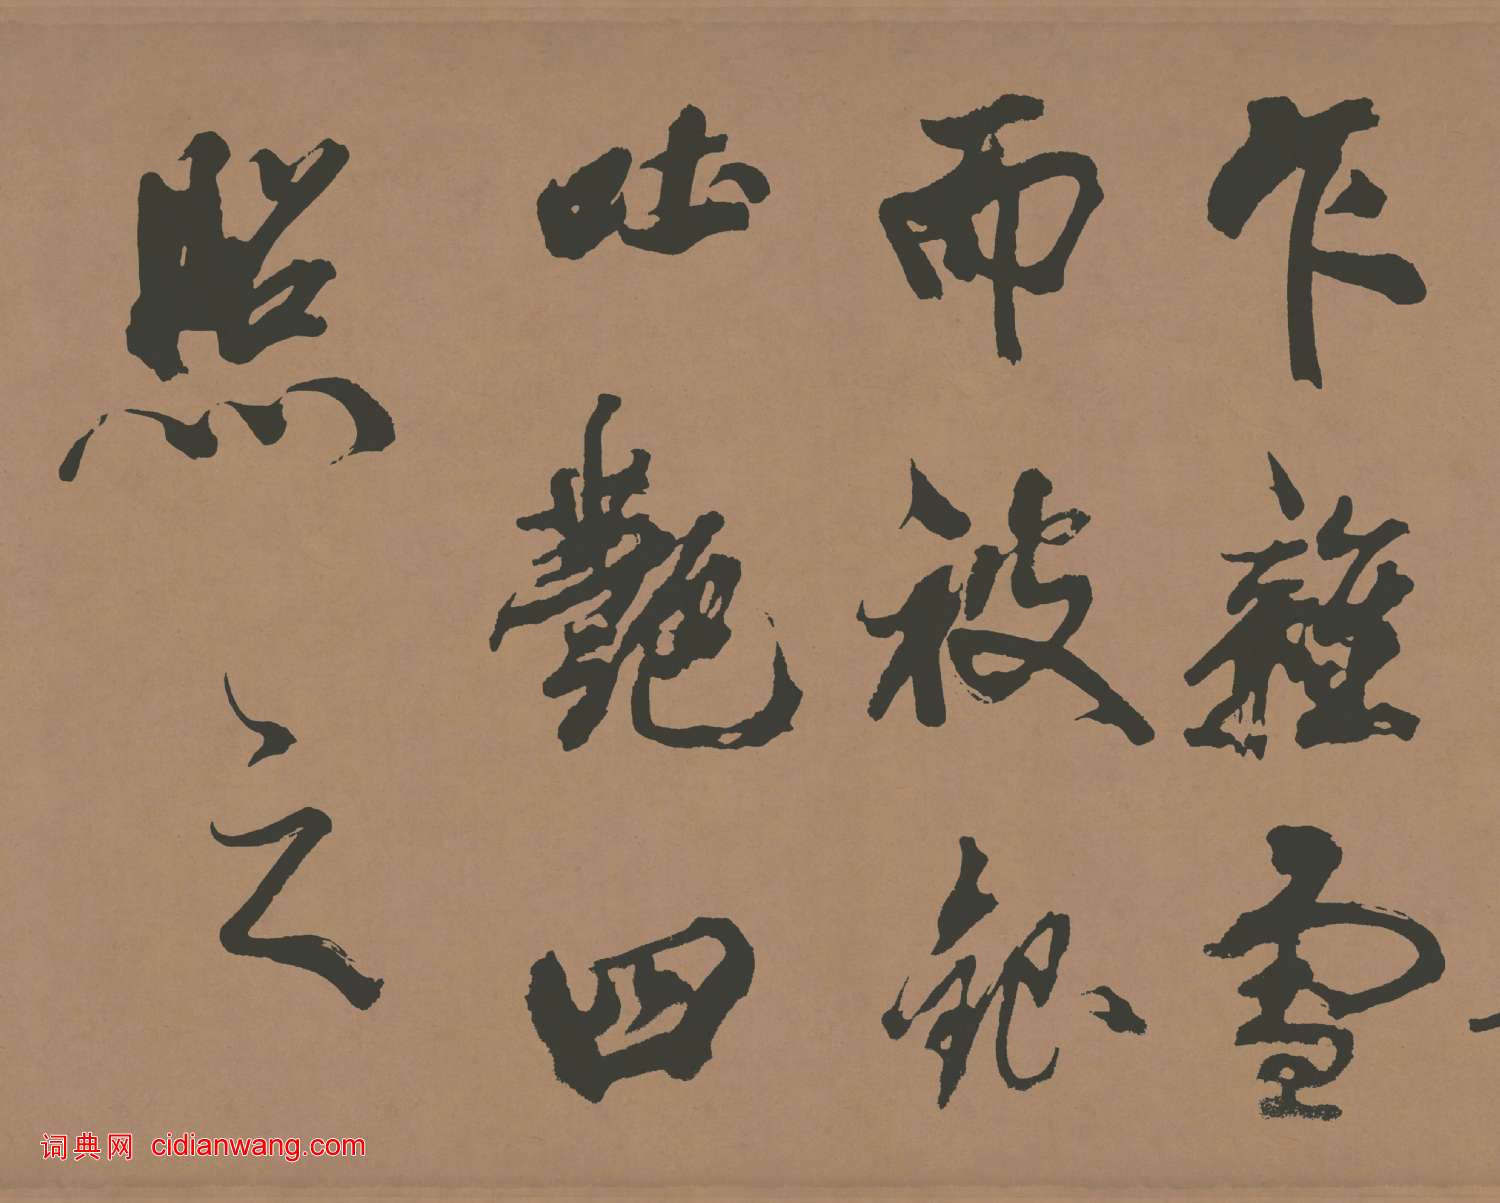 乍雜雪
而被銀
吐艷四
照之
词典网 cidianwang.com